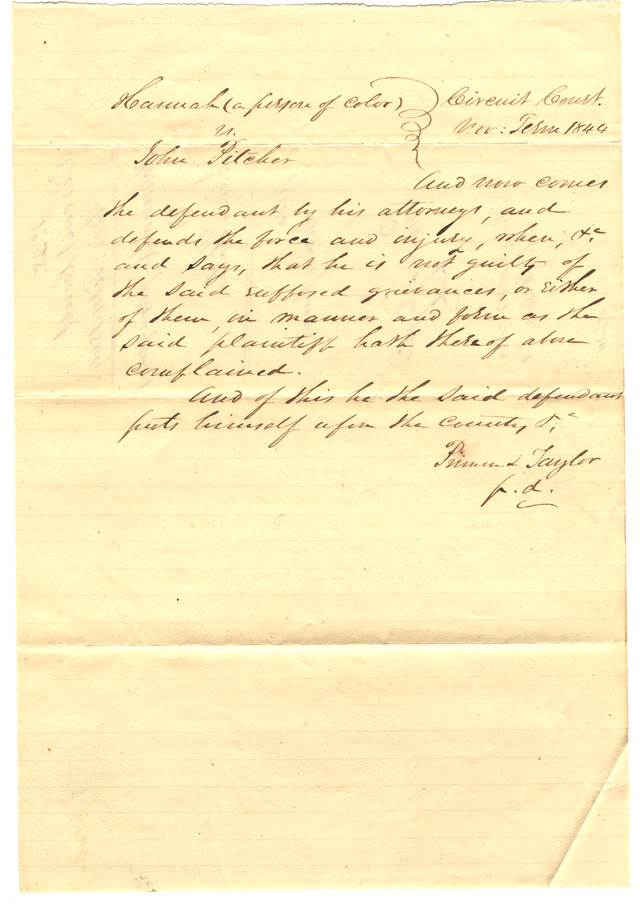 Hannah (a person of color) Circuit Court.
vs. Nov: Term 1844
John Pitcher
And now comes
the defendant by his attorneys, and
defends the force and injury, when, &c
and says, that he is not guilty of
the said supposed grievances, or either
of them, in manner and form as the
said plaintiff hath thereof above
complained.
And of this he the said defendant
puts himself upon the country &c
Primm & Taylor
p. d.